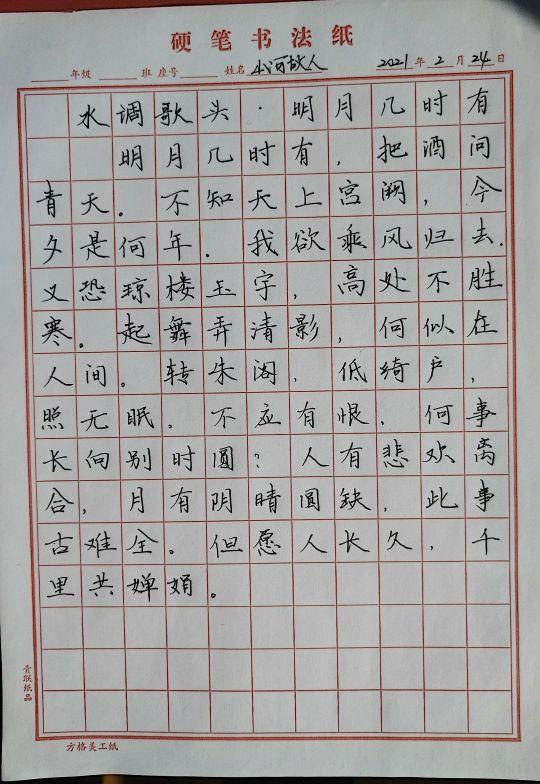 硬笔书法纸
年级 班 座号 姓名 山河故人 2021年2月24日
水调歌头·明月几时有
明月几时有，把酒问
青天。不知天上宫阙，今
夕是何年。我欲乘风归去.
又恐琼楼玉宇，高处不胜
寒。起舞弄清影，何似在
人间。转朱阁，低绮户，
照无眠。不应有恨，何事
长向别时圆？人有悲欢离
合，月有阴晴圆缺，此事
古难全。但愿人长久，千
里共婵娟。
青联纸品
方格美工纸